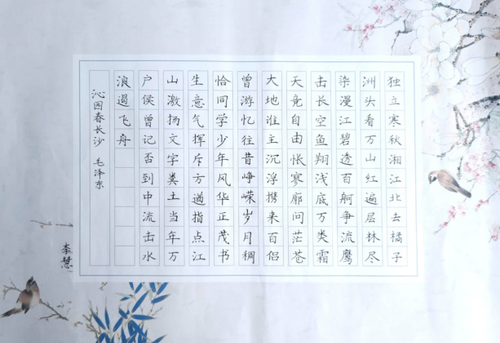 独立寒秋湘江北去橘子
洲头看万山红遍层林尽
染漫江碧透百舸争流鹰
击长空鱼翔浅底万类霜
天竟自由怅寥廓问茫苍
大地谁主沉浮携来百侣
曾游忆往昔峥嵘岁月稠
恰同学少年风华正茂书
生意气挥斥方遒指点江
山激扬文字粪土当年万
户侯曾记否到中流击水
浪遏飞舟
沁园春长沙 毛泽东
李慧